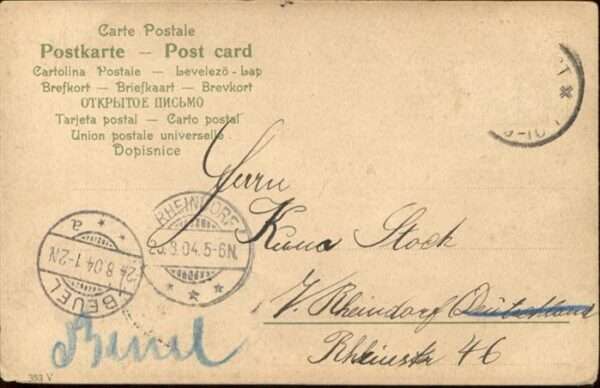 Carte Postale
Postkarte — Post card
Cartolina Postale — Levelező-Lap
Brefkort — Briefkaart — Brevkort
ОТКРЫТОЕ ПИСЬМО
Tarjeta postal — Carto postal
Union postale universelle
Dopisnice
9-10
Herrn
Stock
RHEINDORF
23.8.04.5-6N.
V. Rheindorf Deutschland
Rheinstr 46
BEUEL
24.8.04.1-2N
a
Beuel
393 V